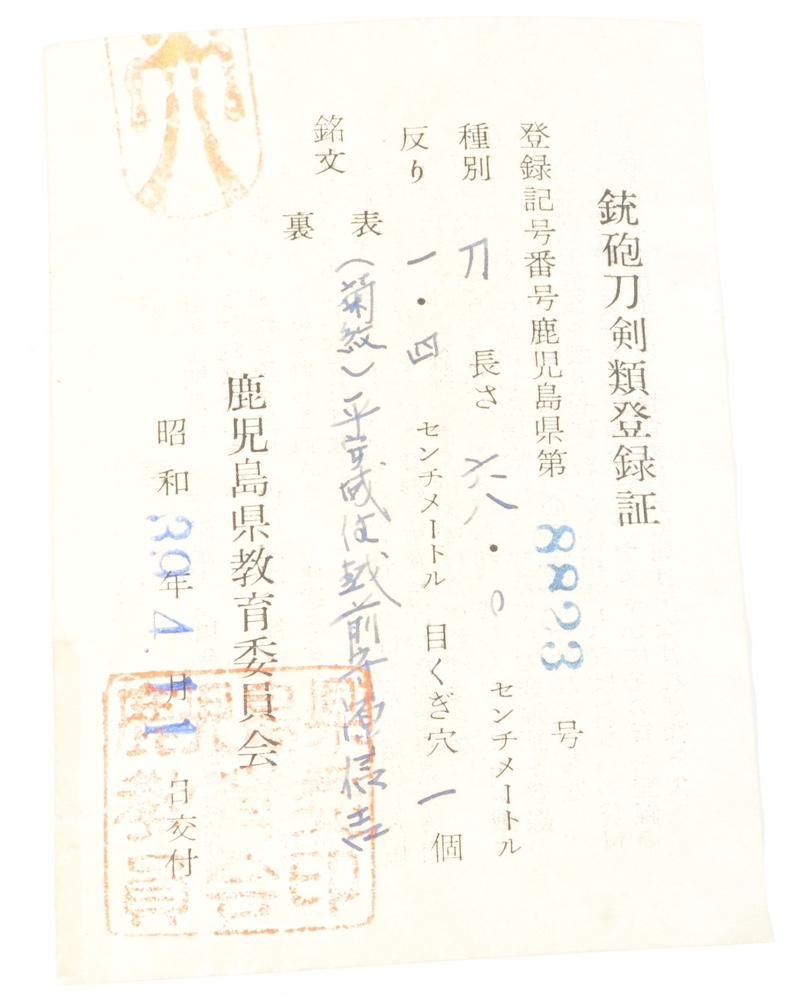 銃砲刀剣類登録証
登録記号番号鹿児島県第 8823 号
種別 刀 長さ 六八・〇 センチメートル
反り 一・四 センチメートル 目くぎ穴 一 個
銘文 表 (菊紋)平安城住越前守源信吉
裏
鹿児島県教育委員会
昭和39年4月11日交付